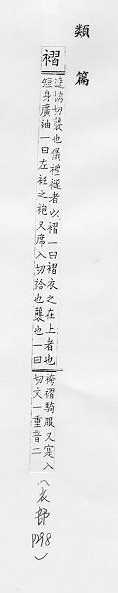 類篇
褶
達協切襲也儀禮襚者以褶一曰褶衣之在上者也
短身廣袖一曰左衽之袍又席入切袷也襲也一曰
袴褶騎服又寔入
切文一重音二
(衣部
)